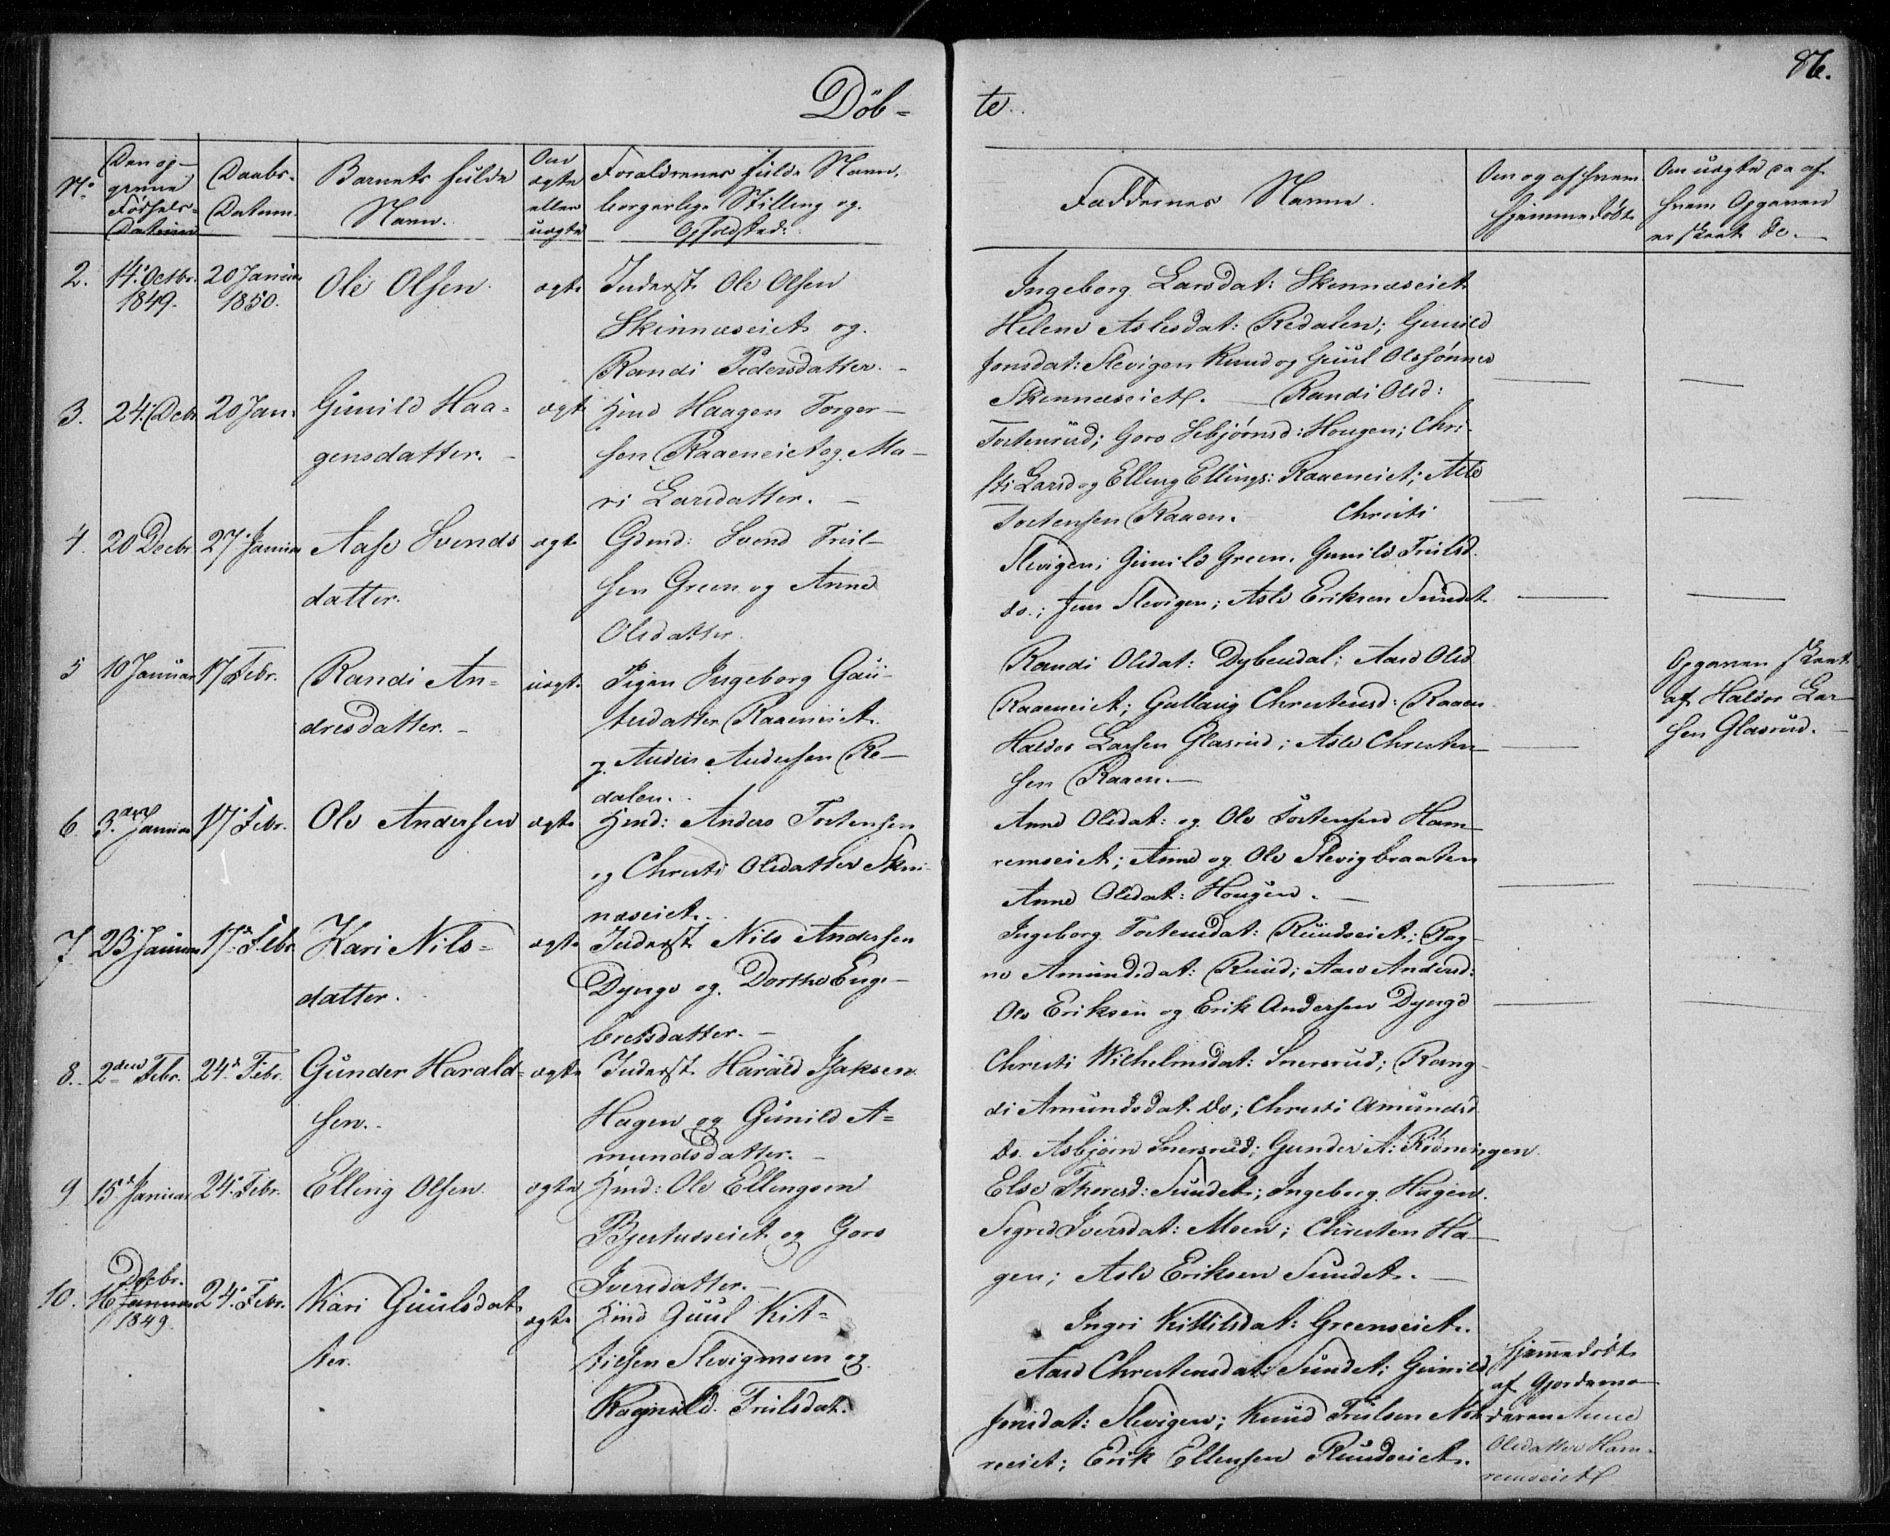 Döb-
te.
86.
No
Den op-
grivne
Fødsels-
Datum
Daabs-
Datum.
Barnets fulde
Navn.
Om
ægte
eller
uægte
Forældrenes fulde Navn,
borgerlige Stilling og
Opholdsted.
Faddernes Navne.
Om og af hvem
hjemmedøbt
Om uægte da af
hvem Opgaven
er skeet &c.
2. 14. Octbr. 20 Januar Ole Olsen ægte Inderst Ole Olsen
1849. 1850.
Skinnæseiet og
Randi Pedersdatter.
Ingeborg Larsdat: Skinnæseiet
Helene Aslesdat: Redalen; Gunild
Jonsdat: Slevigen Knud og Guul Olssønner
Skinnæseiet.
3. 24. Decb 20 Jan. Gunild Haa-
gensdatter.
ægte
Hmd Haagen Torger-
sen Raaeneiet og Ma-
ri Larsdatter.
Randi Olsd:
Tostenrud; Goro Asbjørnsd: Hougen; Chri-
sti Larsd og Elling Ellings: Raaeneiet; Asle
Tostensen Raaen.
4. 20 Decbr 27. Januar Aase Svends
datter.
ægte
Gdmd: Svend Truls-
sen Green og Anne
Olsdatter.
Christi
Slevigen; Gunild Green, Gunild Trulsd.
do.; Jens Slevigen; Asle Eriksen Sundet
5 10 Januar 17 Febr. Randi An-
dresdatter.
uægte
Pigen Ingeborg Gau-
tesdatter Raaeneiet
og Anders Andersen Re-
dalen.
Randi Olsdat: Dybendal; Aase Olsd
Raaeneiet; Gullaug Christensd: Raaen
Haldor Larsen Glasrud; Asle Christen-
sen Raaen.
Opgaven skeet
af Haldor Lar-
sen Glasrud.
6. 3. Januar 17 Febr. Ole Andersen ægte Hmd: Anders Tostensen
og Christi Olsdatter Skin-
næseiet.
Anne Olsdat: og Ole Tostensen Ham-
remseiet; Anne og Ole Slevigbraaten
Anne Olsdat: Hougen.
7. 23 Januar 17. Febr Kari Nils-
datter.
ægte
Inderst Nils Andersen
Dynge og Dorthe Eng-
bretsdatter.
Ingeborg Tostensdat: Ruudseiet; Rag-
ne Amundsdat: Ruud; Aase Andersd:
Ole Eriksen og Erik Andersen Dynge
8. 2den Febr. 24. Febr. Gunder Harald-
sen.
ægte
Inderst Harald Isaksen
Hagen og Gunild A-
mundsdatter.
Christi Wilhelmsdat: Snersrud; Rang-
di Amundsdat do; Christi Amundsd
do. Asbjørn Snersrud; Gunder A: Rødningen
9 15 Januar 24. Febr. Elling Olsen ægte Hmd: Ole Ellingsen
Bjertnæseiet og Goro
Iversdatter.
Else Thoresd: Sundet; Ingeborg Hagen.
Sigrid Iversdat: Moen; Christen Ha-
gen; Asle Eriksen Sundet.
10. 16 Decbr. Januar 24. Febr. Kari Guulsdat-
1849
ter.
ægte
Hmd Guul Kit-
tilsen Slevigmoen og
Ragnild Trulsdat.
Ingri Kittilsdat: Greenseiet.
Aase Christensdat: Sundet; Gunild
Jensdat: Slevigen; Knud Trulsen
reeiet; Erik Ellensen Ruudseiet.
Hjemmedøbt
af Gjordemo-
deren Anne
Olsdatter Ham-
remseiet